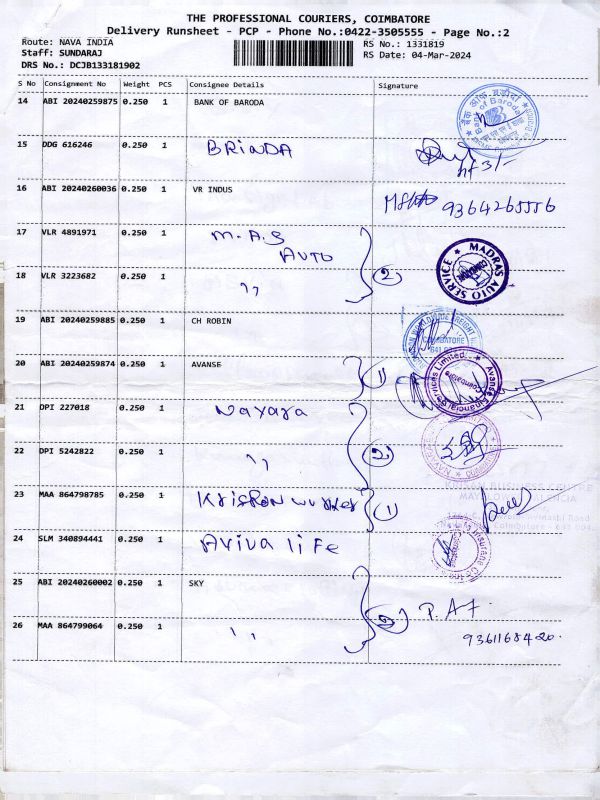 THE PROFESSIONAL COURIERS, COIMBATORE
Delivery Runsheet - PCP - Phone No.:0422-3505555 - Page No.:2
Route: NAVA INDIA
RS No.: 1331819
Staff: SUNDARAJ
RS Date: 04-Mar-2024
DRS No.: DCJB133181902
S No Consignment No Weight PCS Consignee Details Signature
14 ABI 20240259875 0.250 1 BANK OF BARODA
15 DDG 616246 0.250 1 BRINDA
16 ABI 20240260036 0.250 1 VR INDUS 9364265556
17 VLR 4891971 0.250 1 M.A.S
AUTO
MADRAS AUTO SERVICE
18 VLR 3223682 0.250 1 ,, 2
19 ABI 20240259885 0.250 1 CH ROBIN
COIMBATORE
20 ABI 20240259874 0.250 1 AVANSE 1
Avanse Financial Services Limited
Coimbatore
21 DPI 227018 0.250 1 Nayara
22 DPI 5242822 0.250 1 ,, 2
23 MAA 864798785 0.250 1 1
BUSINESS CENTRE
24 SLM 340894441 0.250 1 Aviva life
25 ABI 20240260002 0.250 1 SKY
2 P.A.F.
26 MAA 864799064 0.250 1 ,, 9361168420.